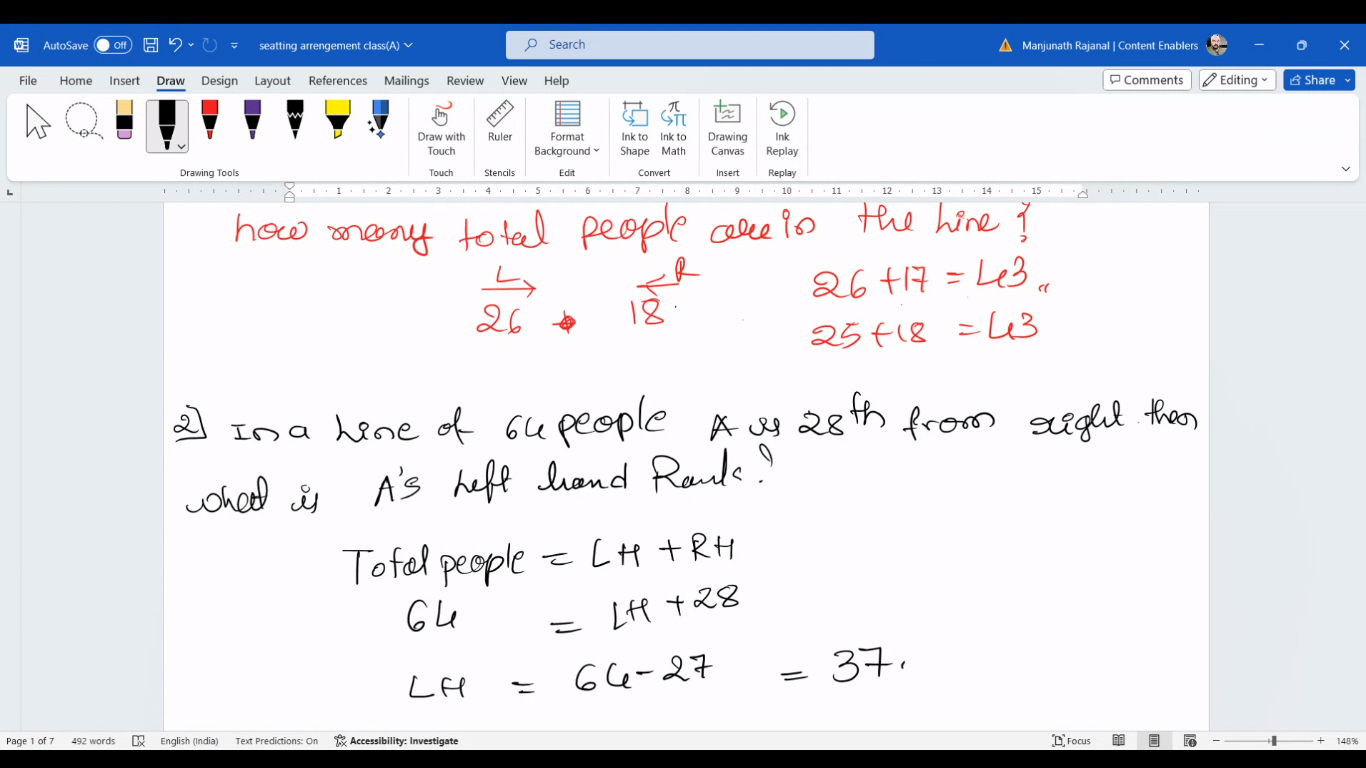 AutoSave Off seatting arrengement class(A) Search Manjunath Rajanal | Content Enablers
File Home Insert Draw Design Layout References Mailings Review View Help Comments Editing Share
Draw with Touch Ruler Format Background Ink to Shape Ink to Math Drawing Canvas Ink Replay
Drawing Tools Touch Stencils Edit Convert Insert Replay
1 2 3 4 5 6 7 8 9 10 11 12 13 14 15
how many total people are in the line?
L R
26 18
26 + 17 = 43
25 + 18 = 43
2] In a line of 64 people A is 28th from right then
what is A's Left hand Rank?
Total people = LH + RH
64 = LH + 28
LH = 64 - 27 = 37.
Page 1 of 7 492 words English (India) Text Predictions: On Accessibility: Investigate Focus 148%